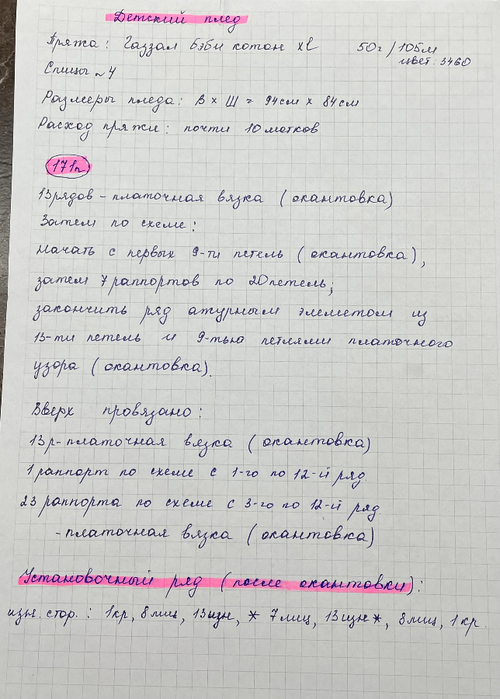 Детский плед
Пряжа: Газзал Бэби котон XL 50г/105м
цвет: 3460
Спицы №4
Размеры пледа: В х Ш = 94см х 84см
Расход пряжи: почти 10 мотков
171п
13 рядов - платочная вязка (окантовка)
Затем по схеме:
начать с первых 9-ти петель (окантовка),
затем 7 раппортов по 20 петель;
закончить ряд ажурным элеметом из
13-ти петель и 9-тью петлями платочного
узора (окантовка).
Вверх провязано:
13р - платочная вязка (окантовка)
1 раппорт по схеме с 1-го по 12-й ряд
23 раппорта по схеме с 3-го по 12-й ряд
- платочная вязка (окантовка)
Установочный ряд (после окантовки):
изн. стор.: 1кр, 8лиц, 13изн, * 7лиц, 13изн *, 8лиц, 1кр